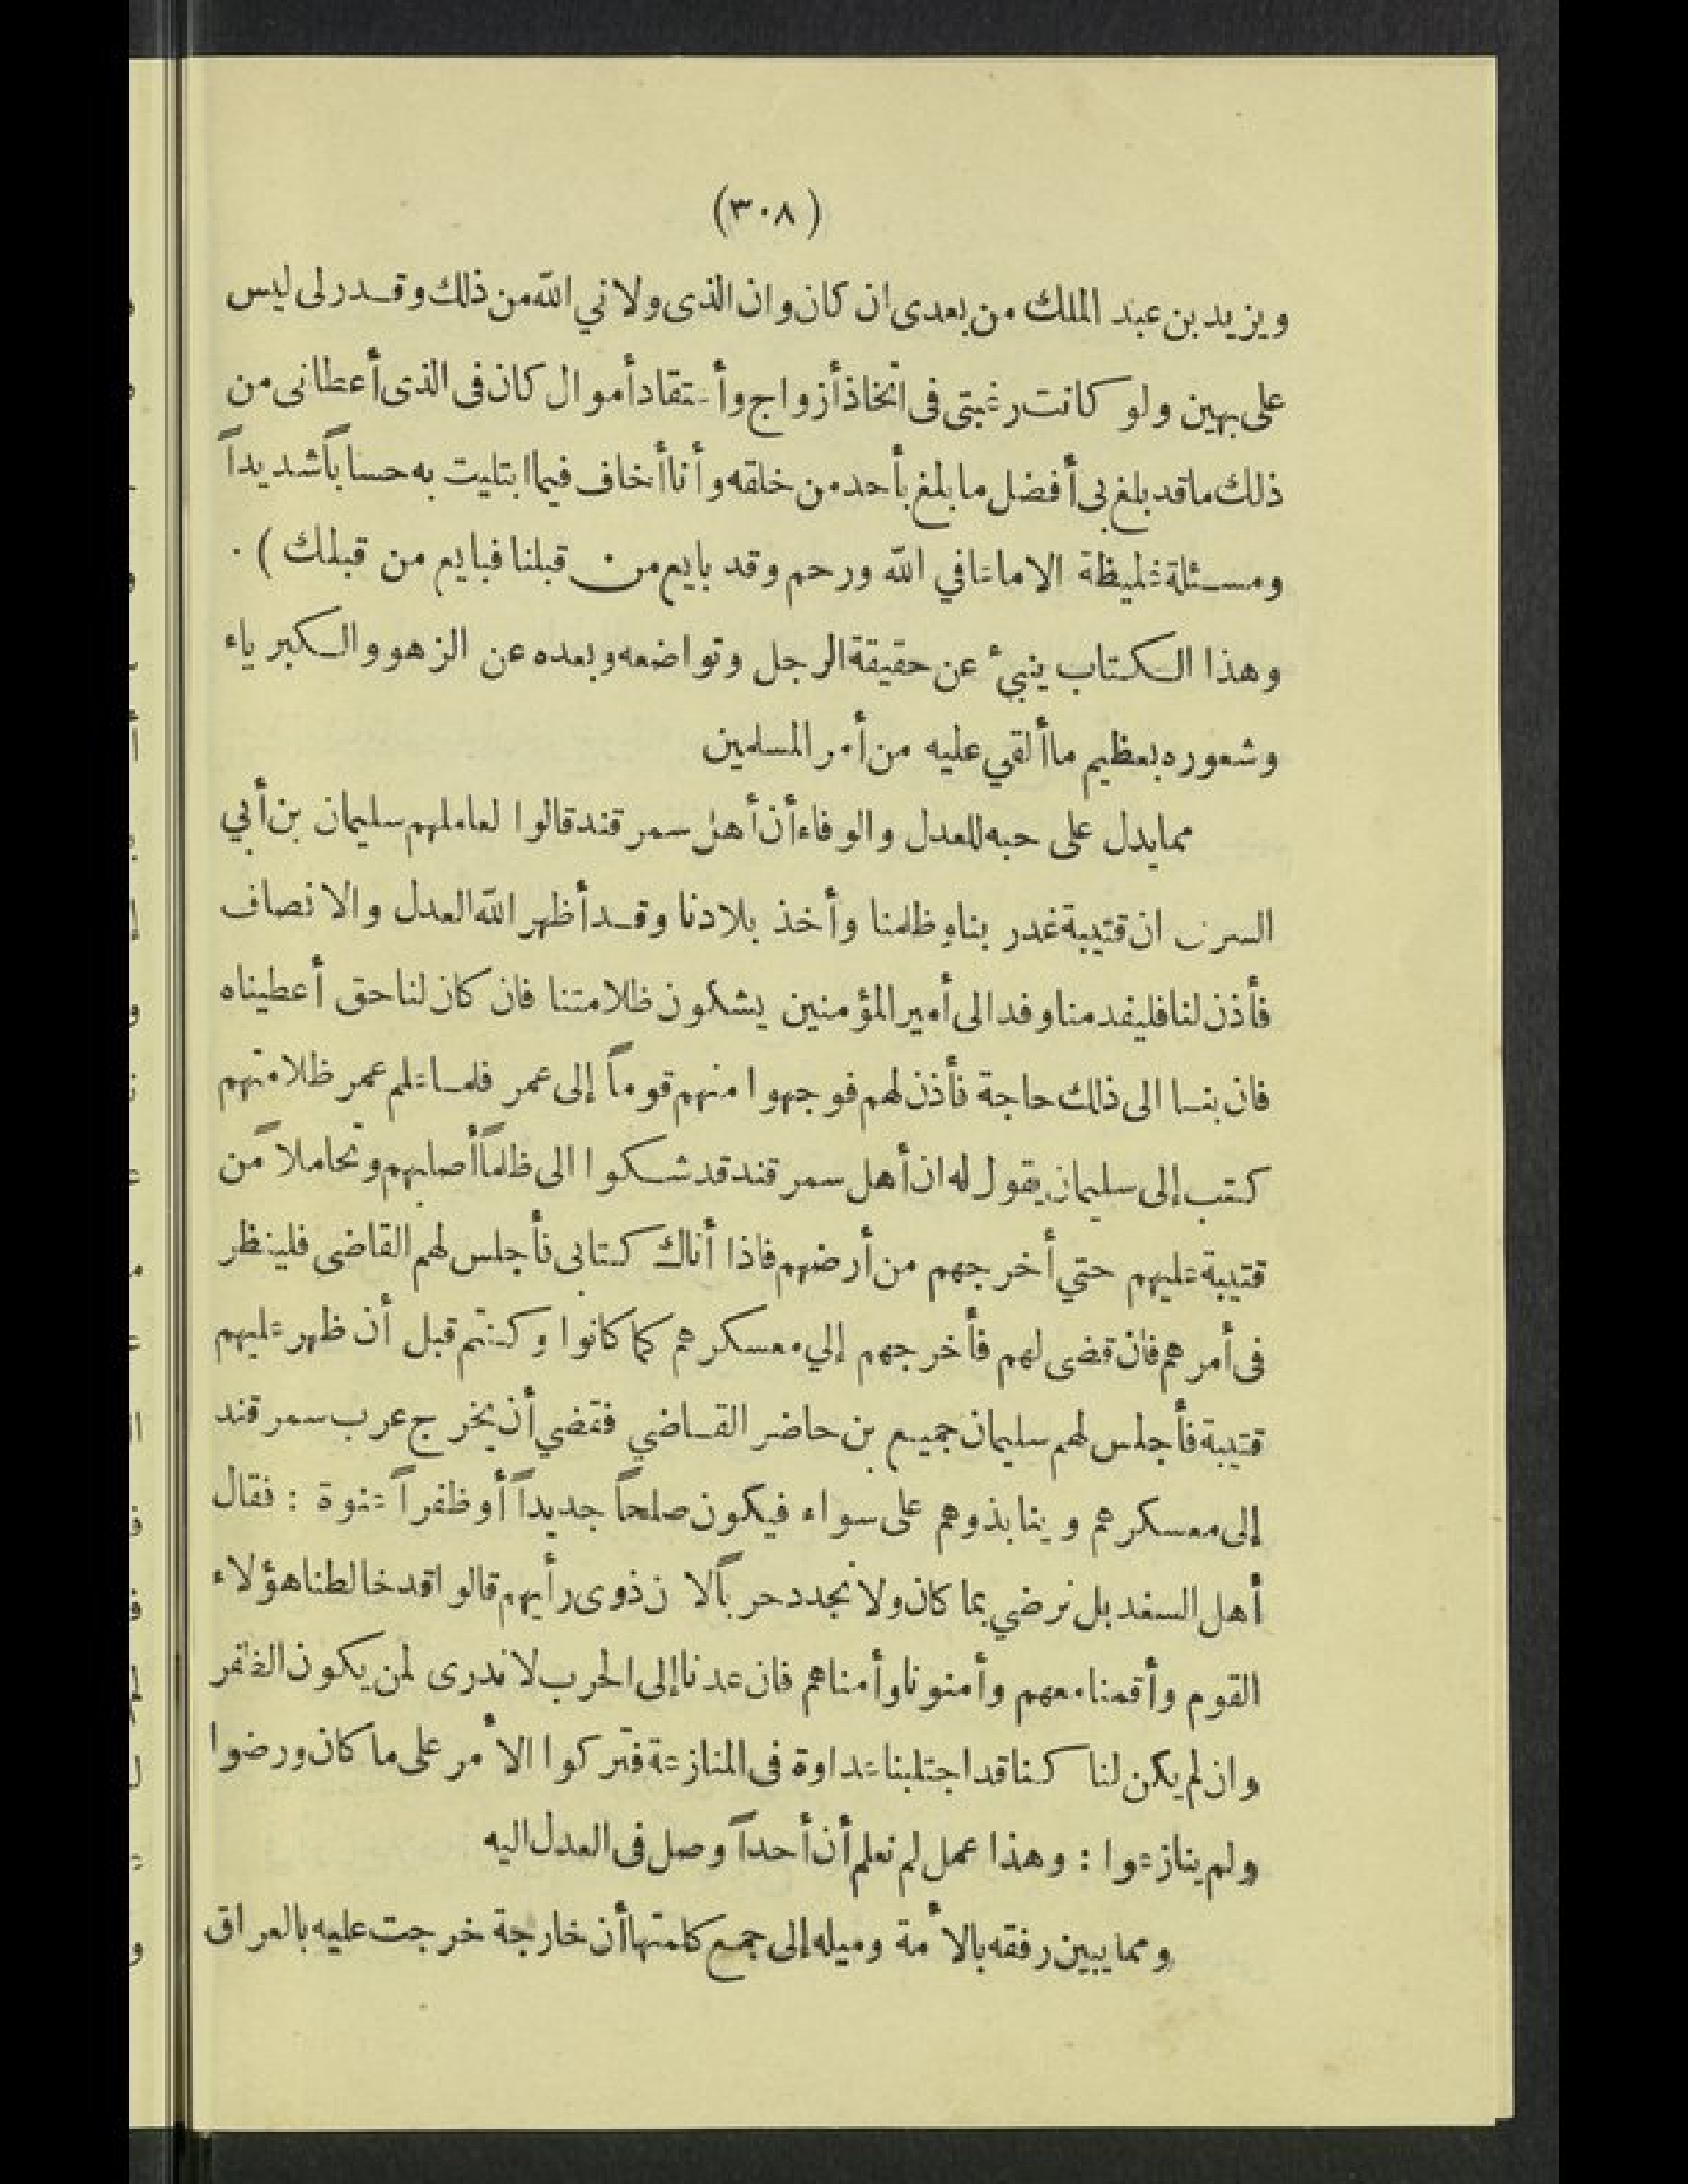 (٣٠٨)
ويزيد بن عبد الملك من بعدى ان كان وان الذى ولاني الله من ذلك وقدر لى ليس
على بهين ولو كانت رغبتى فى اتخاذ أزواج وأعتقاد أموال كان فى الذى أعطانى من
ذلك ما قد بلغ بى أفضل ما بلغ بأحد من خلقه وأنا أخاف فيما ابتليت به حساباً شديداً
ومسئلة غليظة الا ما عافي الله ورحم وقد بايع من قبلنا فبايع من قبلك ) .
وهذا الكتاب ينبىء عن حقيقة الرجل وتواضعه وبعده عن الزهو والكبرياء
وشعوره بعظيم ما ألقي عليه من أمر المسلمين
مما يدل على حبه للعدل والوفاء أن أهل سمرقند قالوا لعاملهم سليمان بن أبي
السرى ان قتيبة غدر بنا وظلمنا وأخذ بلادنا وقد أظهر الله العدل والانصاف
فأذن لنا فليفد منا وفد الى أمير المؤمنين يشكون ظلامتنا فان كان لنا حق أعطيناه
فان بنا الى ذلك حاجة فأذن لهم فوجهوا منهم قوماً إلى عمر فلما علم عمر ظلامتهم
كتب إلى سليمان يقول له ان أهل سمرقند قد شكوا الى ظلماً أصابهم وتحاملاً من
قتيبة عليهم حتي أخرجهم من أرضهم فاذا أتاك كتابى فأجلس لهم القاضى فلينظر
فى أمرهم فان قضى لهم فأخرجهم إلي معسكرهم كما كانوا وكنتم قبل أن ظهر عليهم
قتيبة فأجلس لهم سليمان جميع بن حاضر القاضي فقضي أن يخرج عرب سمرقند
إلى معسكرهم وينابذوهم على سواء فيكون صلحاً جديداً أو ظفراً عنوة : فقال
أهل السغد بل نرضي بما كان ولا نجدد حرباً لان ذوى رأيهم قالوا قد خالطنا هؤلاء
القوم وأقمنا معهم وأمنونا وأمناهم فان عدنا إلى الحرب لا ندرى لمن يكون الظفر
وان لم يكن لنا كنا قد اجتلبنا عداوة فى المنازعة فتركوا الأمر على ما كان ورضوا
ولم ينازعوا : وهذا عمل لم نعلم أن أحداً وصل فى العدل اليه
ومما يبين رفقه بالأمة وميله إلى جمع كلمتها أن خارجة خرجت عليه بالعراق